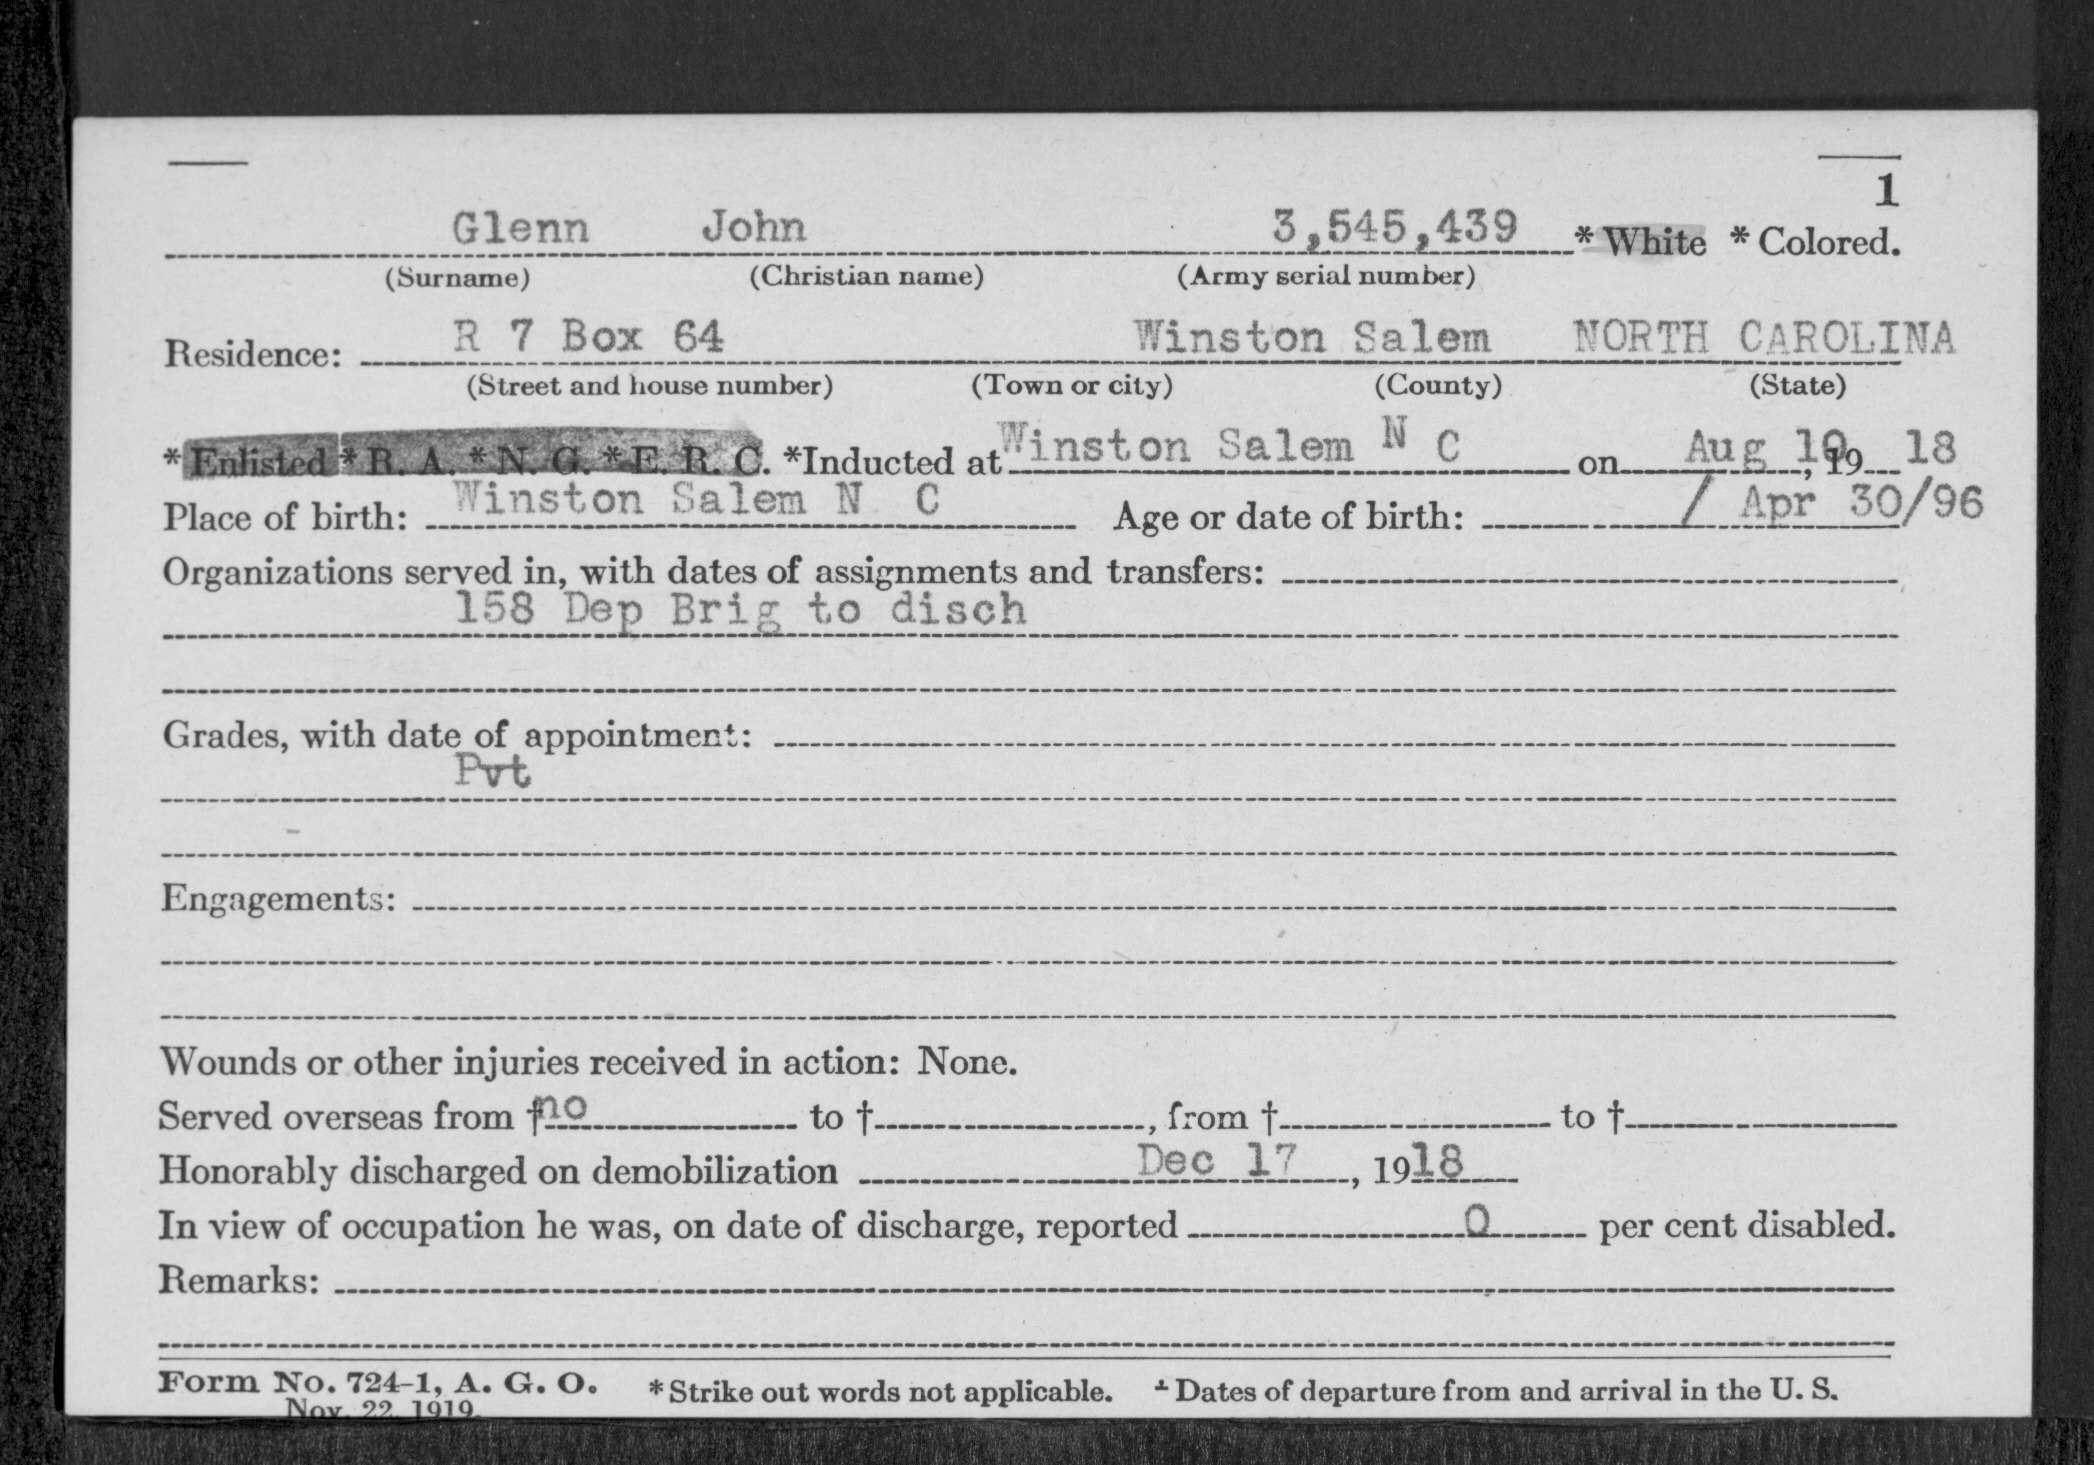 1
Glenn John 3,545,439 * White * Colored.
(Surname) (Christian name) (Army serial number)
Residence: R 7 Box 64 Winston Salem NORTH CAROLINA
(Street and house number) (Town or city) (County) (State)
*Enlisted *R. A. *N. G. *E. R. C. *Inducted at Winston Salem N C on Aug 10, 19 18
Place of birth: Winston Salem N C Age or date of birth: / Apr 30/96
Organizations served in, with dates of assignments and transfers:
158 Dep Brig to disch
Grades, with date of appointment:
Pvt
Engagements:
Wounds or other injuries received in action: None.
Served overseas from † no to †, from † to †
Honorably discharged on demobilization Dec 17, 1918
In view of occupation he was, on date of discharge, reported 0 per cent disabled.
Remarks:
Form No. 724-1, A. G. O. *Strike out words not applicable. † Dates of departure from and arrival in the U. S.
Nov. 22, 1919.